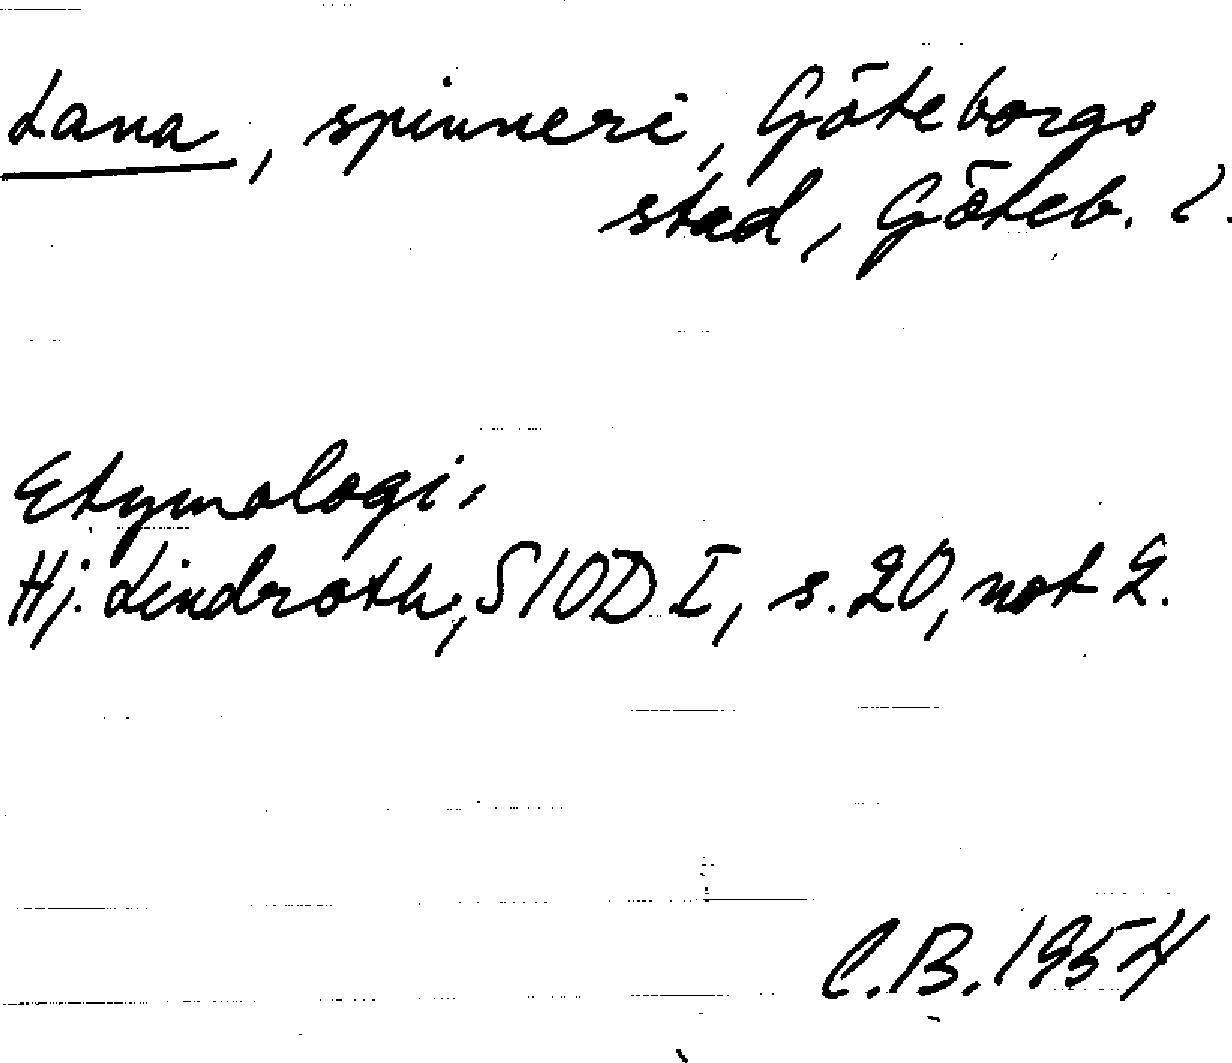 Lana, spinneri, Göteborgs
stad, Göteb. l.
Etymologi.
Hj. Lindroth, SIOD I, s. 20, not 2.
C.B. 1954